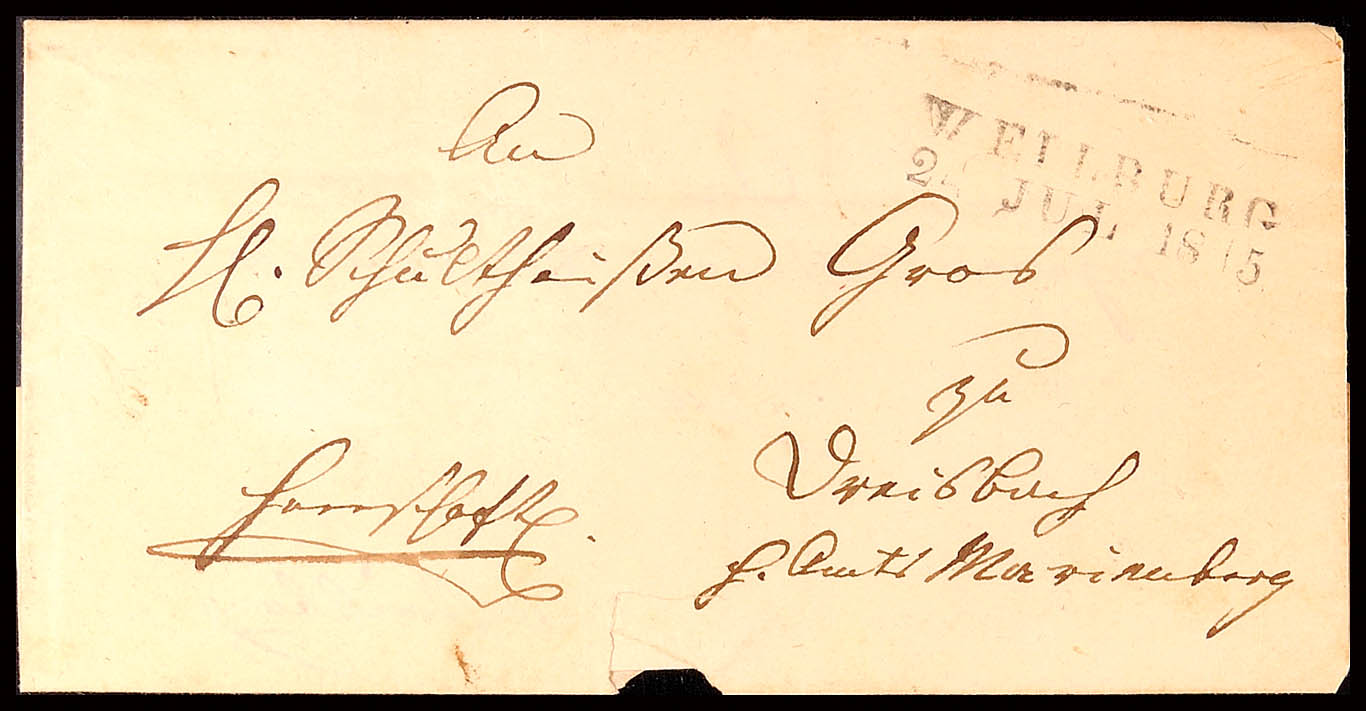 An
H. Schultheißen Gros
zu
Dreisbach
h. Amts Marienberg
Herrschaftl.
WEILBURG
JUL